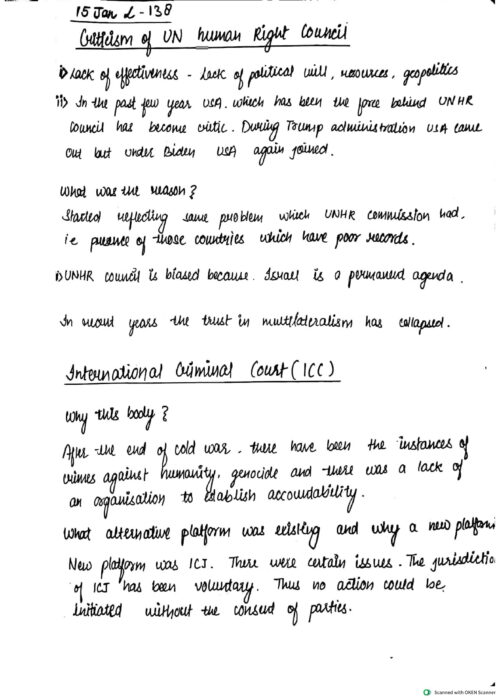 15 Jan L-138
Criticism of UN human Right Council
i) Lack of effectiveness - Lack of political will, resources, geopolitics
ii) In the past few year USA. which has been the force behind UNHR
council has become critic. During Trump administration USA came
out but under Biden USA again joined.
What was the reason?
Started reflecting same problem which UNHR commission had.
i.e presence of those countries which have poor records.
i) UNHR council is biased because. Israel is a permanent agenda.
In recent years the trust in multilateralism has collapsed.
International Criminal Court (ICC)
Why this body?
After the end of cold war. there have been the instances of
crimes against humanity, genocide and there was a lack of
an organisation to establish accountability.
What alternative platform was existing and why a new platform
New platform was ICJ. There were certain issues. The jurisdictio
of ICJ has been voluntary. Thus no action could be
initiated without the consent of parties.
Scanned with OKEN Scanner